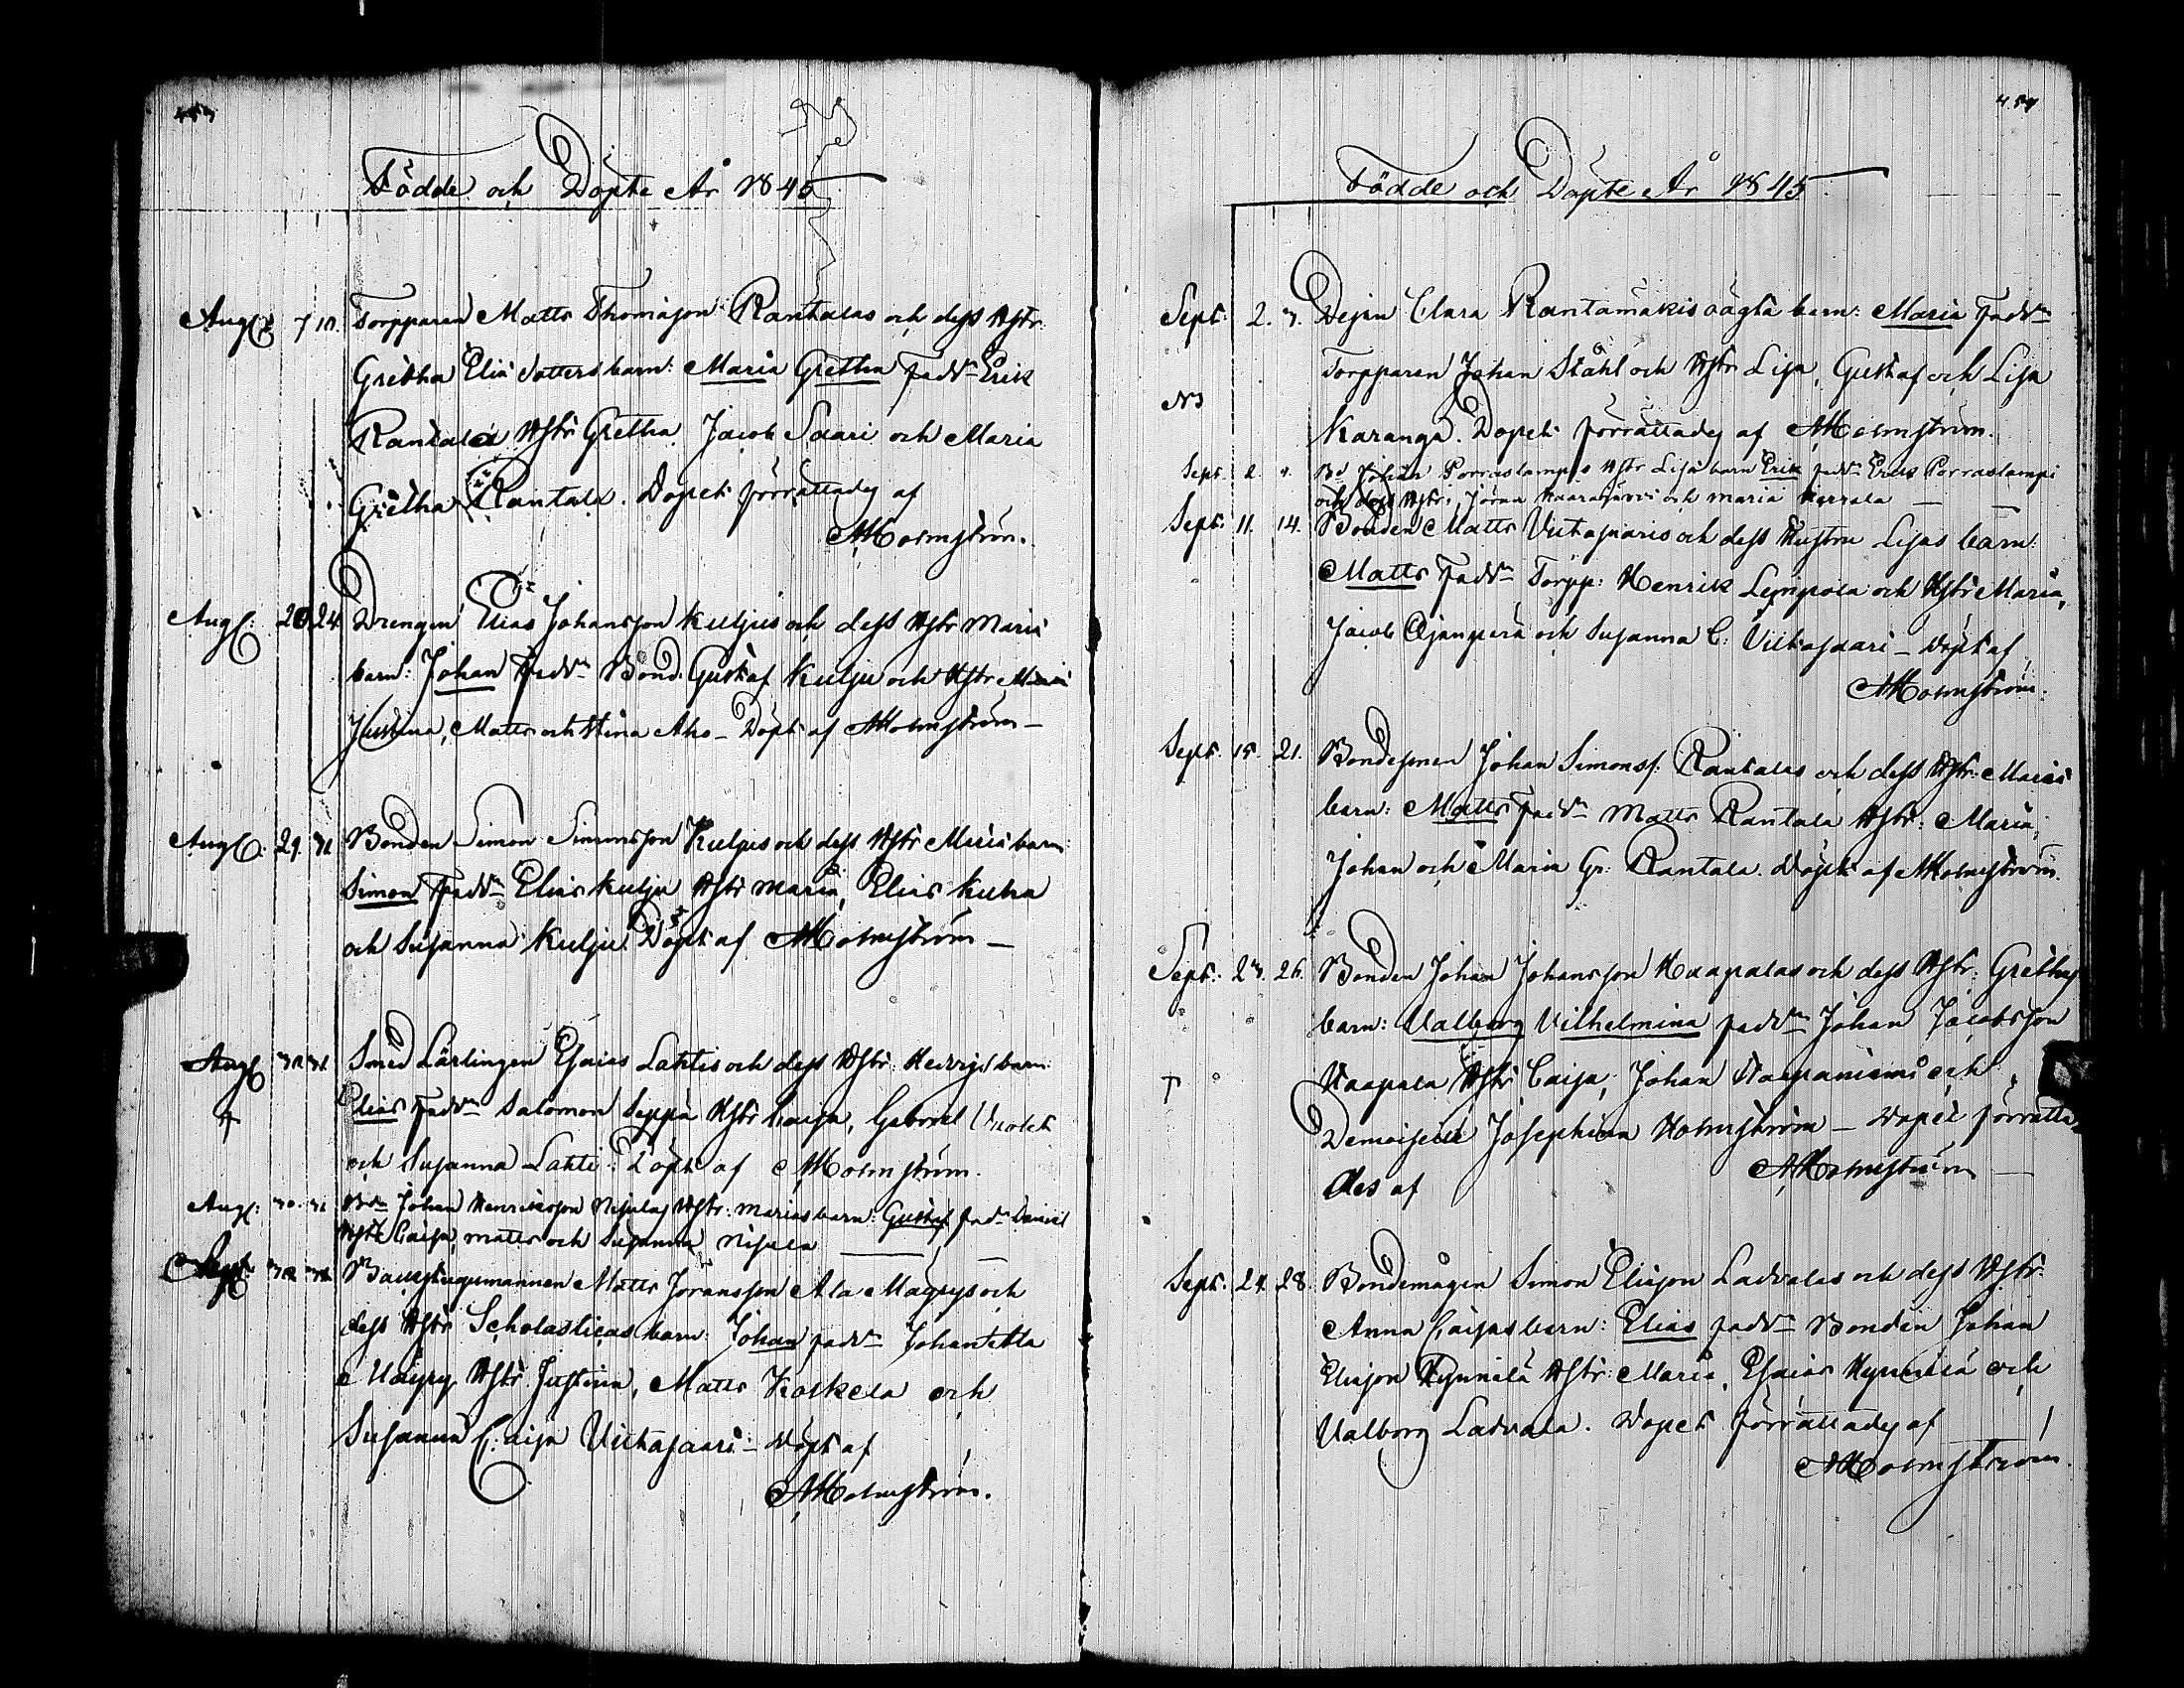 453
Födde och Döpte År 1845
Augs 7 10. Torpparen Matts Thomasson Rantalas och dess Hstr
Gretha Elia dotters barn: Maria Gretha fadd:r Erik
Rantala Hstr Gretha, Jacob Saari och Maria
Gretha Rantala. Dopet förrättades af
AHolmström.
Augs: 20. 24 Drengen Elias Johansson Kuljus och dess Hstr Marias
barn: Johan fadd:r Bond. Gustaf Kulju och Hstr
Justina, Matts och Stina Aho – Döpt af AHolmström –
Augs: 29. 31 Bonden Simon Simonsson Kuljus och dess Hstr Marias barn:
Simon fadd:r Elias Kulju Hstr Maria, Elias Kuha
och Susanna Kulju. Döpt af AHolmström –
Augs 30 31 Smed Lärlingen Esaias Lahtis och dess Hstr: Hedvigs barn:
† Elias fadd:r Salomon Seppä Hstr Caisa, Gabriel
och Susanna Lahti. Döpt af AHolmström.
Augs: 30. 31 Bdn Johan Henriksson Nisulas Hstr: Marias barn: Gustaf fadr Daniel
Hstr Caisa, Matts och Susanna Nisula
30 31 Backstugumannen Matts Joransson Ala Mäyrys och
dess Hstr Scholasticas barn: Johan fadd:r Johan Ala
Mäyry Hstr Justina, Matts Koskela och
Susanna Caisa Viitasaari – Döpt af
AHolmström.
454
Födde och Döpte År 1845
Sept: 2. 3. Dejan Clara Rantamäkis oägta barn: Maria fadd:r
Torpparen Johan Ståhl och Hstr Lisa, Gustaf och Lisa
Karanga. Dopet förrättades af AHolmström.
Sept. 2. Bd Johan Porraslampis Hstr Lisas barn Erik fadd:r Erik Porraslampi
och dess Hstr, Jöran och Maria
Sept: 11. 14. Bonden Matts Viitasaaris och dess Hustru Lisas barn:
Matts fadd:r Torpp: Henrik Lempola och Hstr Maria,
Jacob Ojanperä och Susanna C: Viitasaari – Döpt af
AHolmström.
Sept. 15. 21. Bondesonen Johan Simonss: Rantalas och dess Hstr: Marias
barn: Matts fadd:r Matts Rantala Hstr: Maria,
Johan och Maria Gr: Rantala. Döpt af AHolmström.
Sept: 23. 26. Bonden Johan Johansson Haapalas och dess Hstr: Grethas
barn: Valborg Vilhelmina fadd:r Johan Jacobsson
† Haapala Hstr Caisa, Johan Haapaniemi och
Demoiselle Josephina Holmström – Dopet förrätta
des af AHolmström –
Sept. 24. 28. Bondemågen Simon Eliasson Ladvalas och dess Hstr:
Anna Caisas barn: Elias fadd:r Bonden Johan
Eliasson Hynnilä Hstr: Maria, Esaias Hynnilä och
Valborg Ladvala. Dopet förrättades af
AHolmström